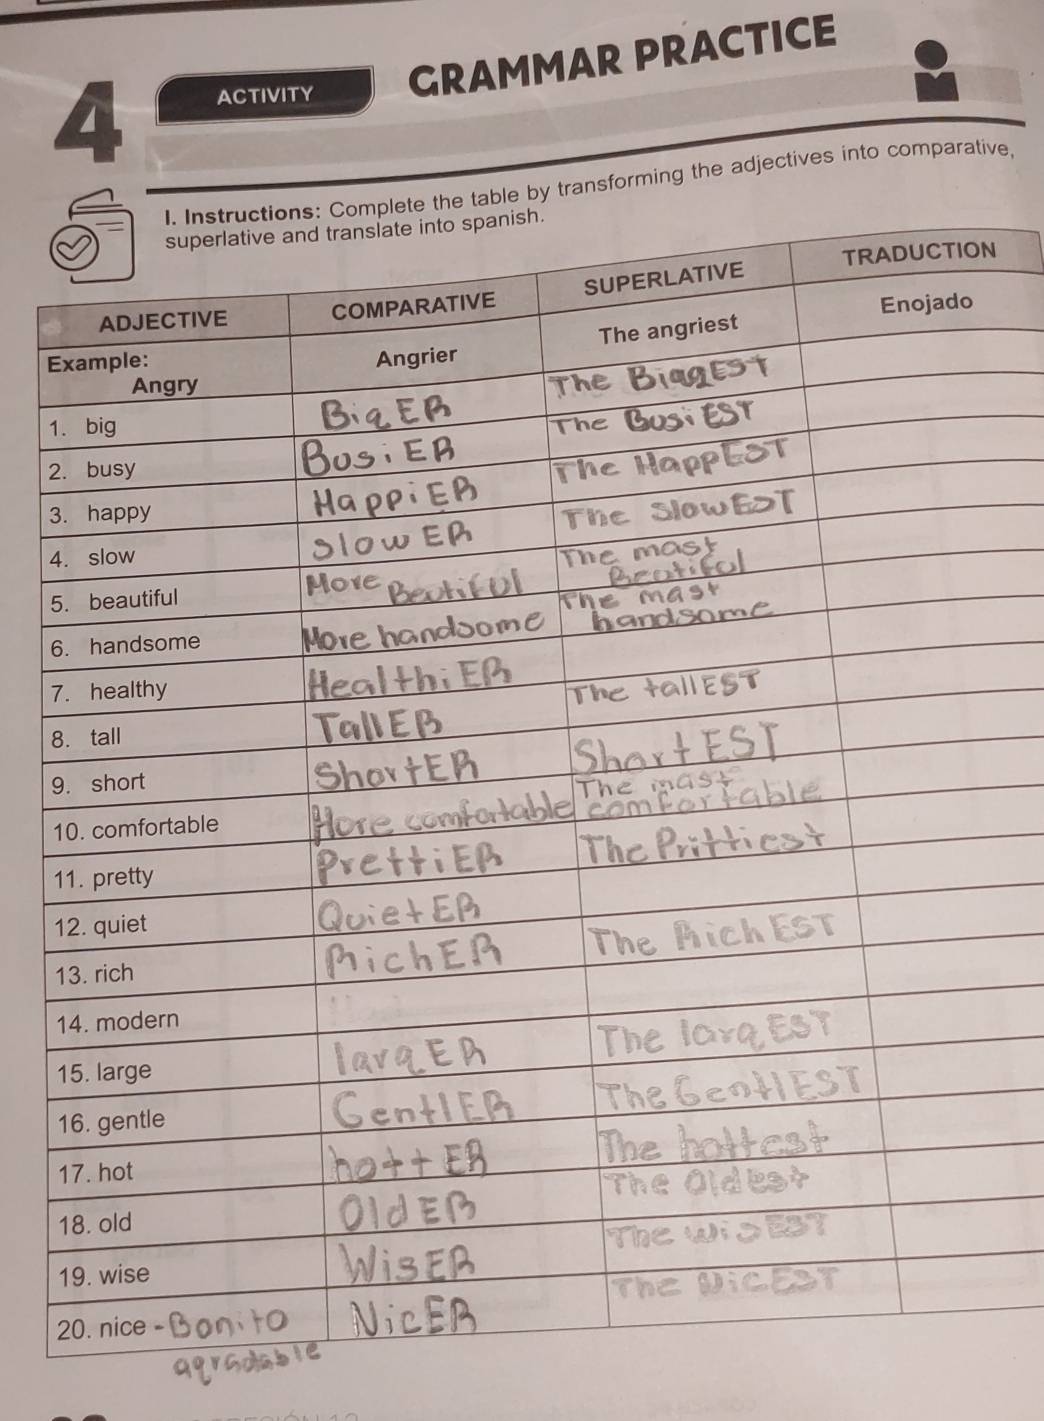 4 ACTIVITY GRAMMAR PRACTICE
I. Instructions: Complete the table by transforming the adjectives into comparative,
superlative and translate into spanish.
ADJECTIVE COMPARATIVE SUPERLATIVE TRADUCTION
Example:
Angry Angrier The angriest Enojado
1. big BigER The BiggEST
2. busy BusiER The BusiEST
3. happy HappiER The HappEST
4. slow SlowER The SlowEST
5. beautiful More Beatiful The mast Beatiful
6. handsome More handsome The mast handsome
7. healthy HealthiER
8. tall TallER The tallEST
9. short ShortER ShortEST
10. comfortable More comfortable The mast comfortable
11. pretty PrettiER The Prittiest
12. quiet QuietER
13. rich RichER The RichEST
14. modern
15. large largER The largEST
16. gentle GentlER The GentlEST
17. hot hottER The hottest
18. old OldER The Oldest
19. wise WisER The wisEST
20. nice - Bonito NicER The NicEST
agradable